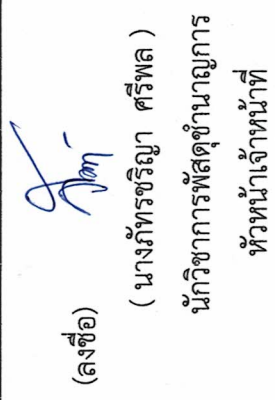 (ลงชื่อ)
( นางภัทรชริญา ศรีพล )
นักวิชาการพัสดุชำนาญการ
หัวหน้าเจ้าหน้าที่